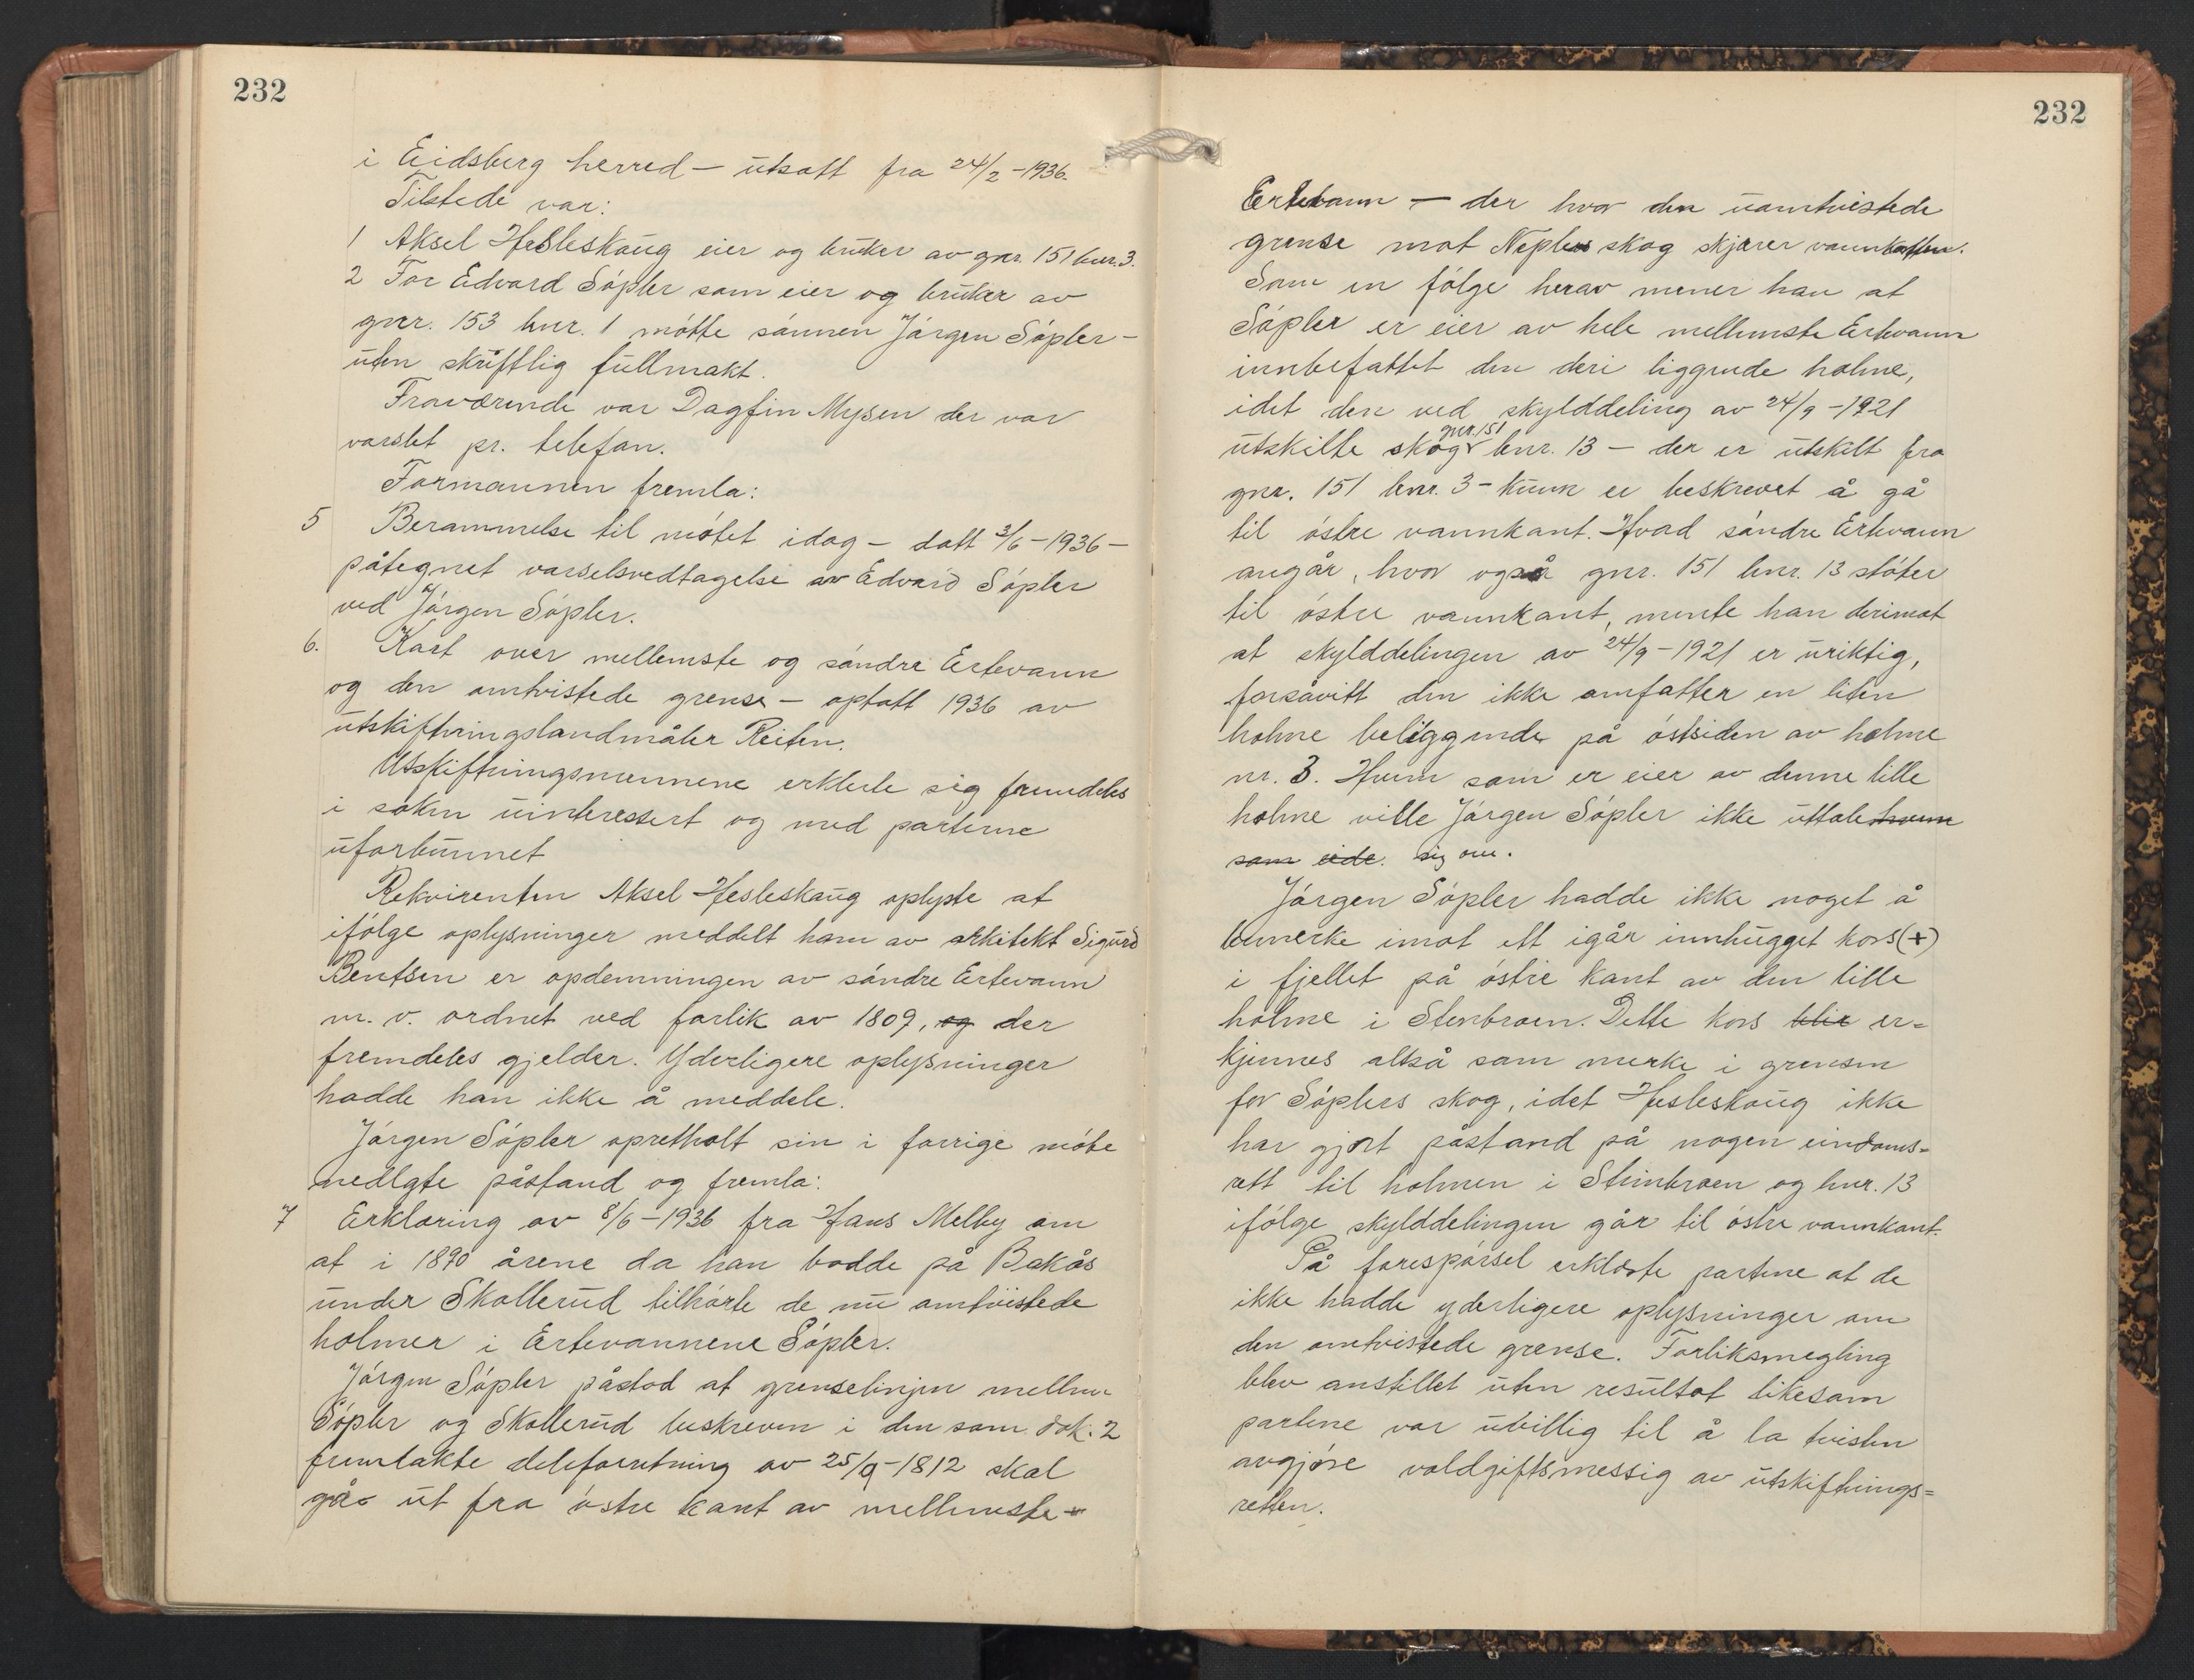 232
i Eidsberg herred – utsatt fra 24/2 – 1936.
Tilstede var:
1 Aksel Hesleskaug eier og bruker av gnr. 151 bnr. 3.
2 For Edvard Söpler som eier og bruker av
gnr. 153 bnr. 1 mötte sönnen Jörgen Söpler –
uten skriftlig fullmakt.
Fraværende var Dagfin Mysen der var
varslet pr. telefon.
Formannen fremla:
5 Berammelse til mötet idag – datt 3/6 – 1936 –
påtegnet varselsvedtagelse av Edvard Söpler
ved Jörgen Söpler.
6. Kart over mellemste og söndre Ertevann
og den omtvistede grense – optatt 1936 av
utskiftningslandmåler Reiten.
Utskiftningsmennene erklerte sig fremdeles
i saken uinteressert og med parterne
uforbunnet
Rekvirenten Aksel Hesleskaug oplyste at
ifölge oplysninger meddelt ham av arkitekt Sigurd
Bentsen er opdemningen av söndre Ertevann
m. v. ordnet ved forlik av 1809, og der
fremdeles gjelder. Yderligere oplysninger
hadde han ikke å meddele.
Jörgen Söpler opretholt sin i forrige möte
nedlagte påstand og fremla:
7 Erklæring av 8/6 – 1936 fra Hans Melby om
at i 1890 årene da han bodde på Bakås
under Skollerud tilhörte de nu omtvistede
holmer i Ertevannene Söpler.
Jörgen Söpler påstod at grenselinjen mellem
Söpler og Skollerud beskreven i den som dok. 2
fremlakte deleforretning av 25/9 – 1812 skal
gå ut fra östre kant av mellemste
232
Ertevann – der hvor den uomtvistede
grense mot Neplus skog skjærer vannkatten.
Som en fölge herav mener han at
Söpler er eier av hele mellemste Ertevann
innbefattet den deri liggende holme,
idet den ved skylddeling av 24/9 – 1921
utskilte skog gnr. 151 bnr. 13 – der er utskilt fra
gnr. 151 bnr. 3 – kunn er beskrevet å gå
til östre vannkant. Hvad söndre Ertevann
angår, hvor også gnr. 151 bnr. 13 stöter
til östre vannkant, mente han derimot
at skylddelingen av 24/9 – 1921 er uriktig,
forsåvitt den ikke omfatter en liten
holme beliggende på östsiden av holme
nr. 3. Hvem som er eier av denne lille
holme ville Jörgen Söpler ikke uttale hvem
som eide. sig om.
Jörgen Söpler hadde ikke noget å
bemerke imot ett igår innhugget kors (+)
i fjellet på östre kant av den lille
holme i Stenbroen. Dette kors blir er=
kjennes altså som merke i grensen
for Söplers skog, idet Hesleskaug ikke
har gjort påstand på nogen eindoms=
rett til holmen i Stenbroen og bnr. 13
ifölge skylddelingen går til östre vannkant.
På forespörsel erklærte partene at de
ikke hadde yderligere oplysninger om
den omtvistede grense. Forliksmegling
blev anstillet uten resultat likesom
partene var uvillig til å la tvisten
avgjöre voldgiftsmessig av utskiftnings=
retten.